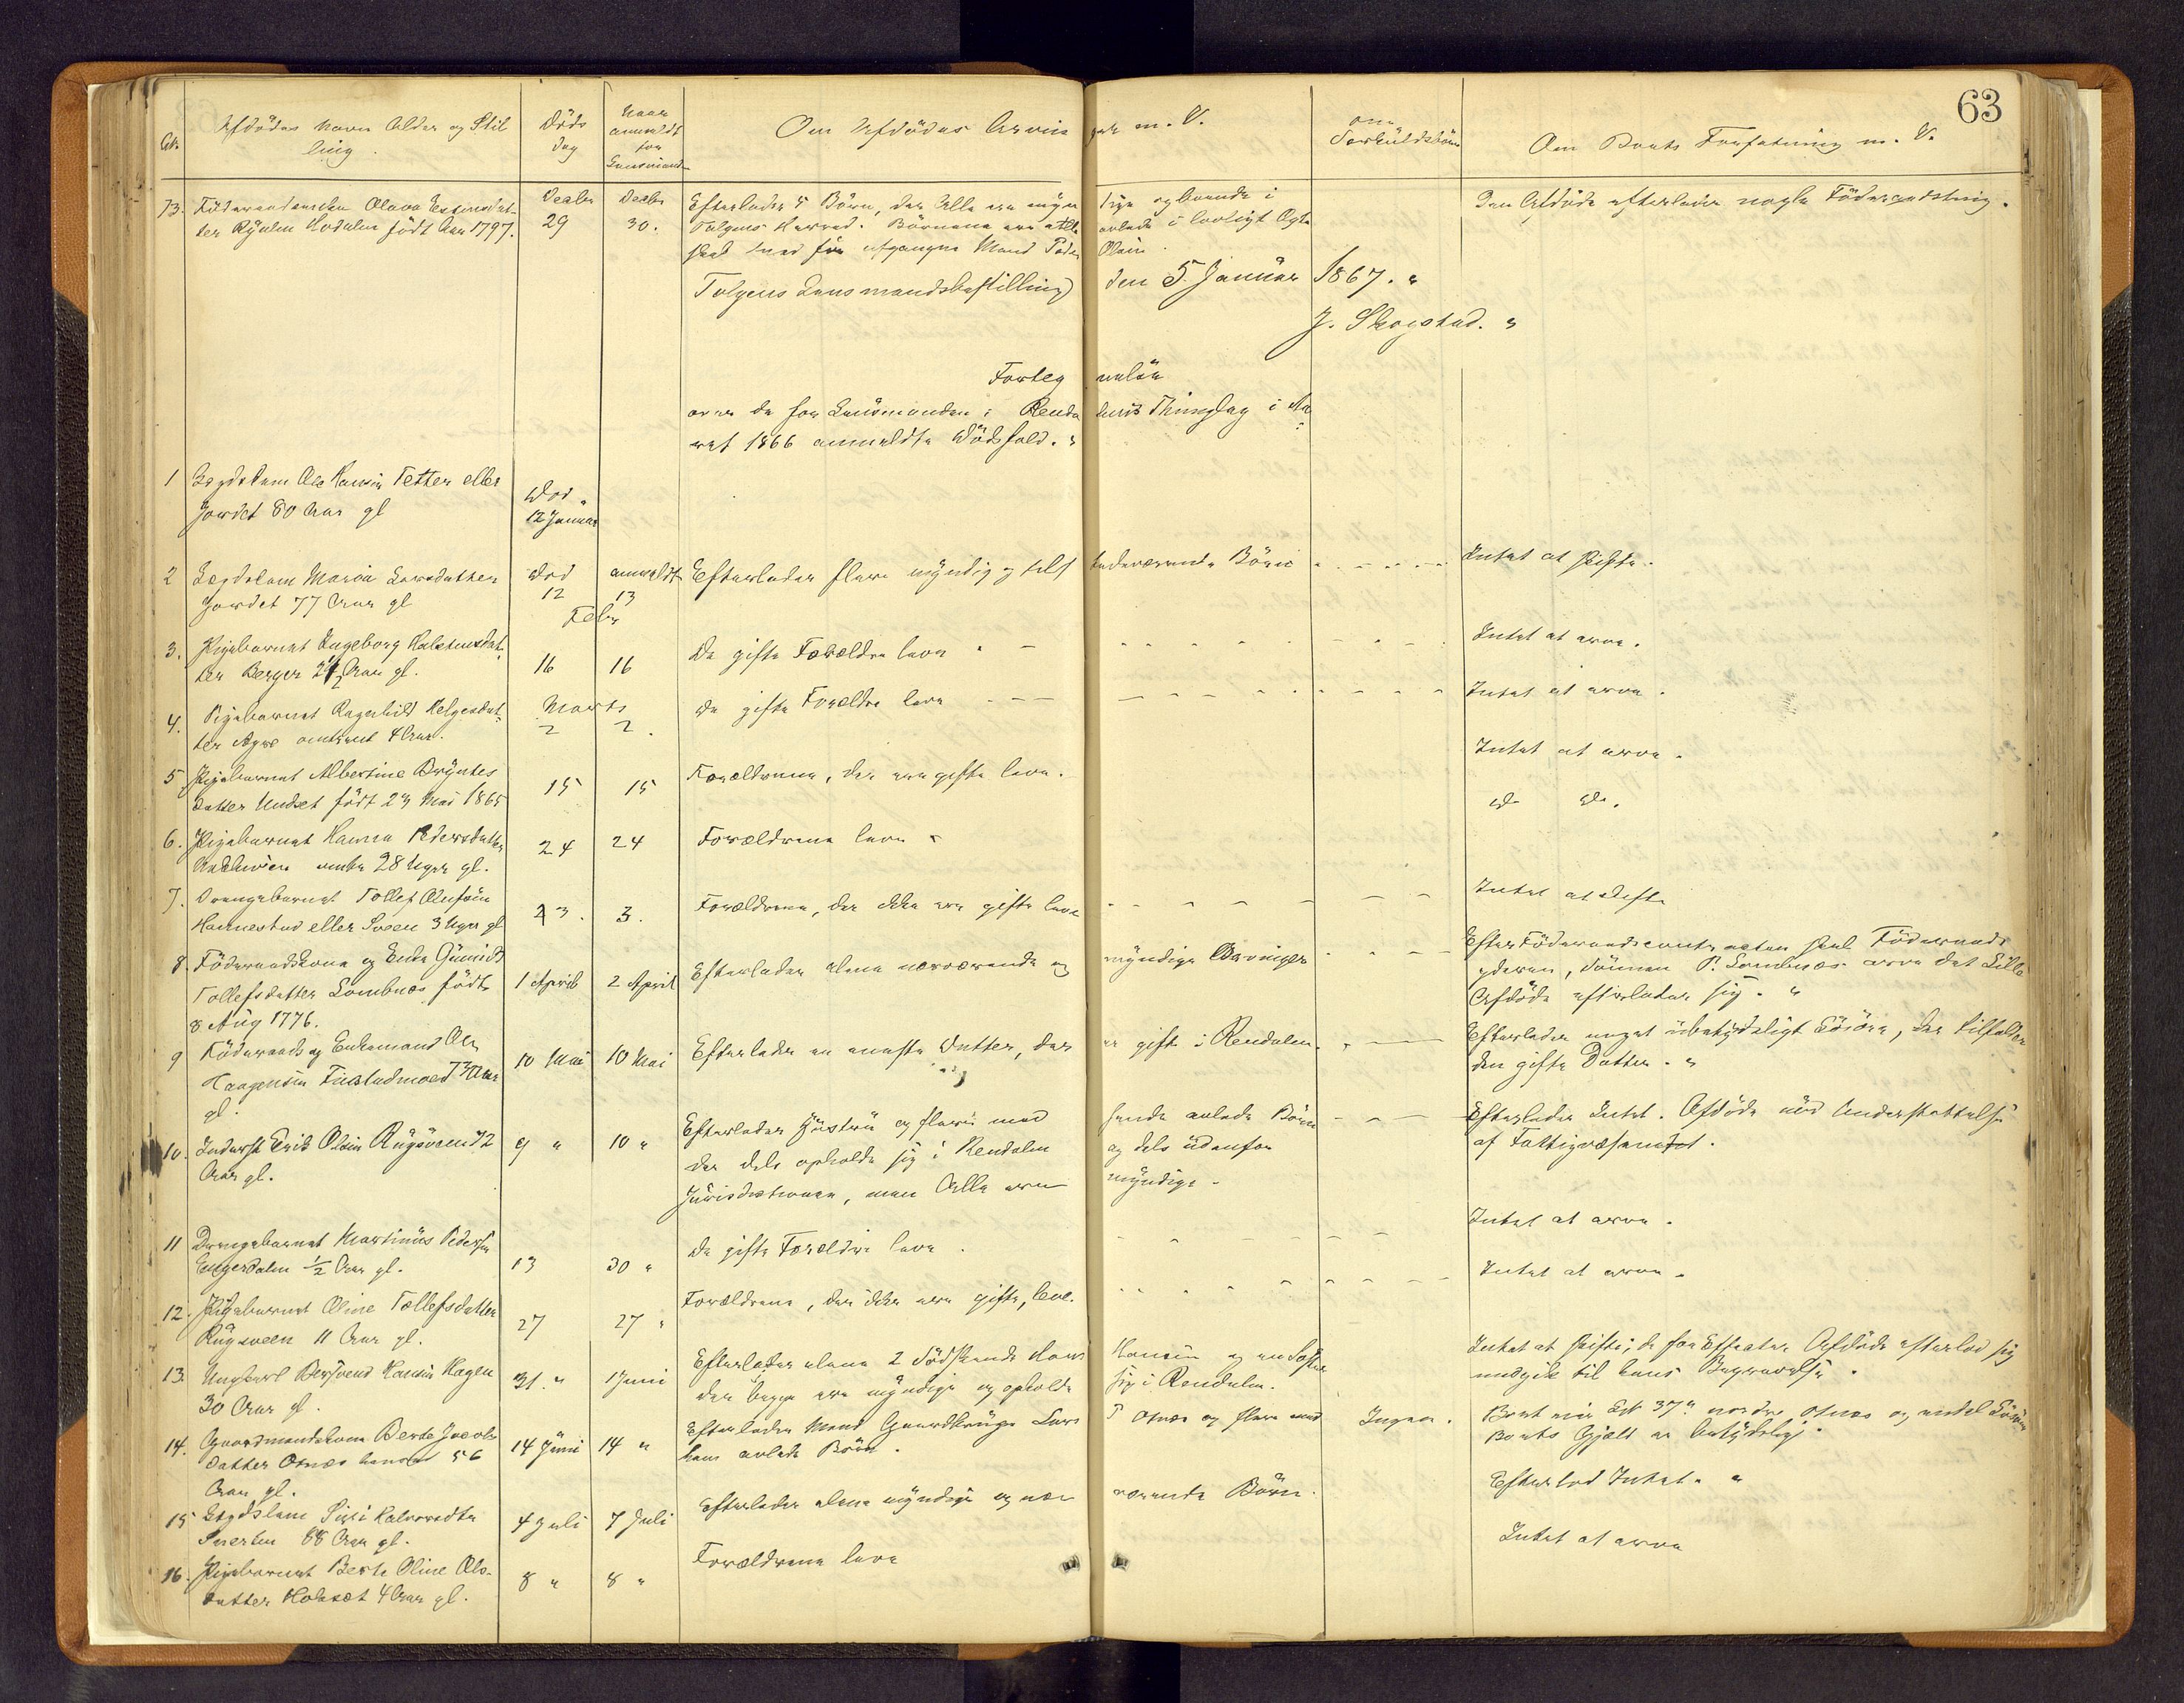 63
Afdødes Navn Alder og Stil
ling.
Døds
dag
Naar
anmeldt
for
Lensmanden
Om Afdødes Arvinger m. V.
om
Særkuldsbørn
Om Boets Forfatning m. V.
73. Föderaadsenken Olava Estensdat-
ter Ryalen Hodalen født Aar 1797.
Decbr
29
Decbr
30.
Efterlader 5 Børn, der Alle ere myndige og boende i
Tolgens Herred. Børnene ere avlede i lovligt Ægte
skab med før afgangne Mand Peder Olsen.
Den Afdøde efterlader nogle Föderaadsting.
Tolgens Lensmandsbestilling den 5 Januar 1867.
J. Skogstad.
Fortegnelse
over de for Lensmanden i Rendalens Thinglag i Aa
ret 1866 anmeldte Dødsfald.
1 Legdslem Ole Hansen Tetten eller
Jordet 80 Aar gl
Død
12 Januar
2 Legdslem Maria Larsdatter
Jordet 77 Aar gl
Død
12
anmeldt
13
Febr
Efterlader flere myndig og tilstedeværende Børn
Intet at skifte.
3. Pigebarnet Ingeborg Halstensdat-
ter Berger 2 1/2 Aar gl.
16 16
De gifte Forældre leve
Intet at arve.
4. Pigebarnet Ragnhild Helgesdat-
ter Agre omtrent 4 Aar.
Marts
2 2.
De gifte Forældre leve
Intet at arve.
5 Pigebarnet Albertine Bryntes
datter Undset født 23 Mai 1865
15 15
Forældrene, der ere gifte leve.
Intet at arve.
6. Pigebarnet Hanna Pedersdatter
28 Uger gl.
24 24
Forældrene leve
do do.
7. Drengebarnet Tollef Olufsen
Hannestad eller Sveen 3 Uger gl
23. 3.
Forældrene, der ikke ere gifte leve
Intet at skifte
8. Föderaadskone og Enke Gunnild
Tollefsdatter Lombnæs født
8 Aug 1776.
1 April 2 April
Efterlader alene nærværende og myndige Arvinger
Efter Föderaadscontracten skal Föderaads
yderen, Sønnen P. Lombnæs arve det Lille
Afdøde efterlader sig.
9 Föderaads og Enkemand Ole
Haagensen Fiskstadmoed 73 Aar
gl.
10 Mai 10 Mai
Efterlader en eneste Datter, der er gift i Rendalen.
Efterlader noget ubetydeligt Løsøre, der tilfalder
den gifte Datter.
10. Inderst Erik Olsen Rugsveen 72
Aar gl.
9 " 10 "
Efterlader Hustru og flere med hende avlede Børn
der dels opholde sig i Rendalen og dels udenfor
Jurisdictionen, men Alle ere myndige.
Efterlader Intet. Afdøde nød Understøttelse
af Fattigvæsenet.
11 Drengebarnet Martinus Pedersen
Engerdalen 1/2 Aar gl.
13 30 "
De gifte Forældre leve.
Intet at arve.
12. Pigebarnet Oline Tollefsdatter
Rugsveen 11 Aar gl.
27 27 "
Forældrene, der ikke ere gifte, leve.
Intet at arve.
13. Ungkarl Bersvend Hansen Hagen
30 Aar gl.
31. " 1 Juni
Efterlader alene 2 Sødskende Hans Hansen og en Søster
der begge ere myndige og opholde sig i Rendalen.
Intet at skifte; de faa Effecter Afdøde efterlod sig
medgik til hans Begravelse.
14. Gaardmandskone Berte Jacobs
datter Otnæs 56
Aar gl.
14 Juni 14 "
Efterlader Mand Gaardbruger Lars P Otnæs og flere med
ham avlede Børn.
Ingen.
Boet eier 37 nordre Otnæs og endel Løsøre
Boets Gjæld er betydelig.
15 Legdslem Siri Halvorsdtr
Snerten 88 Aar gl.
4 Juli 7 Juli
Efterlader alene myndige og nærværende Børn.
Efterlod Intet.
16. Pigebarnet Berte Oline Ols-
datter Holeset 4 Aar gl.
8 " 8 "
Forældrene leve
Intet at arve